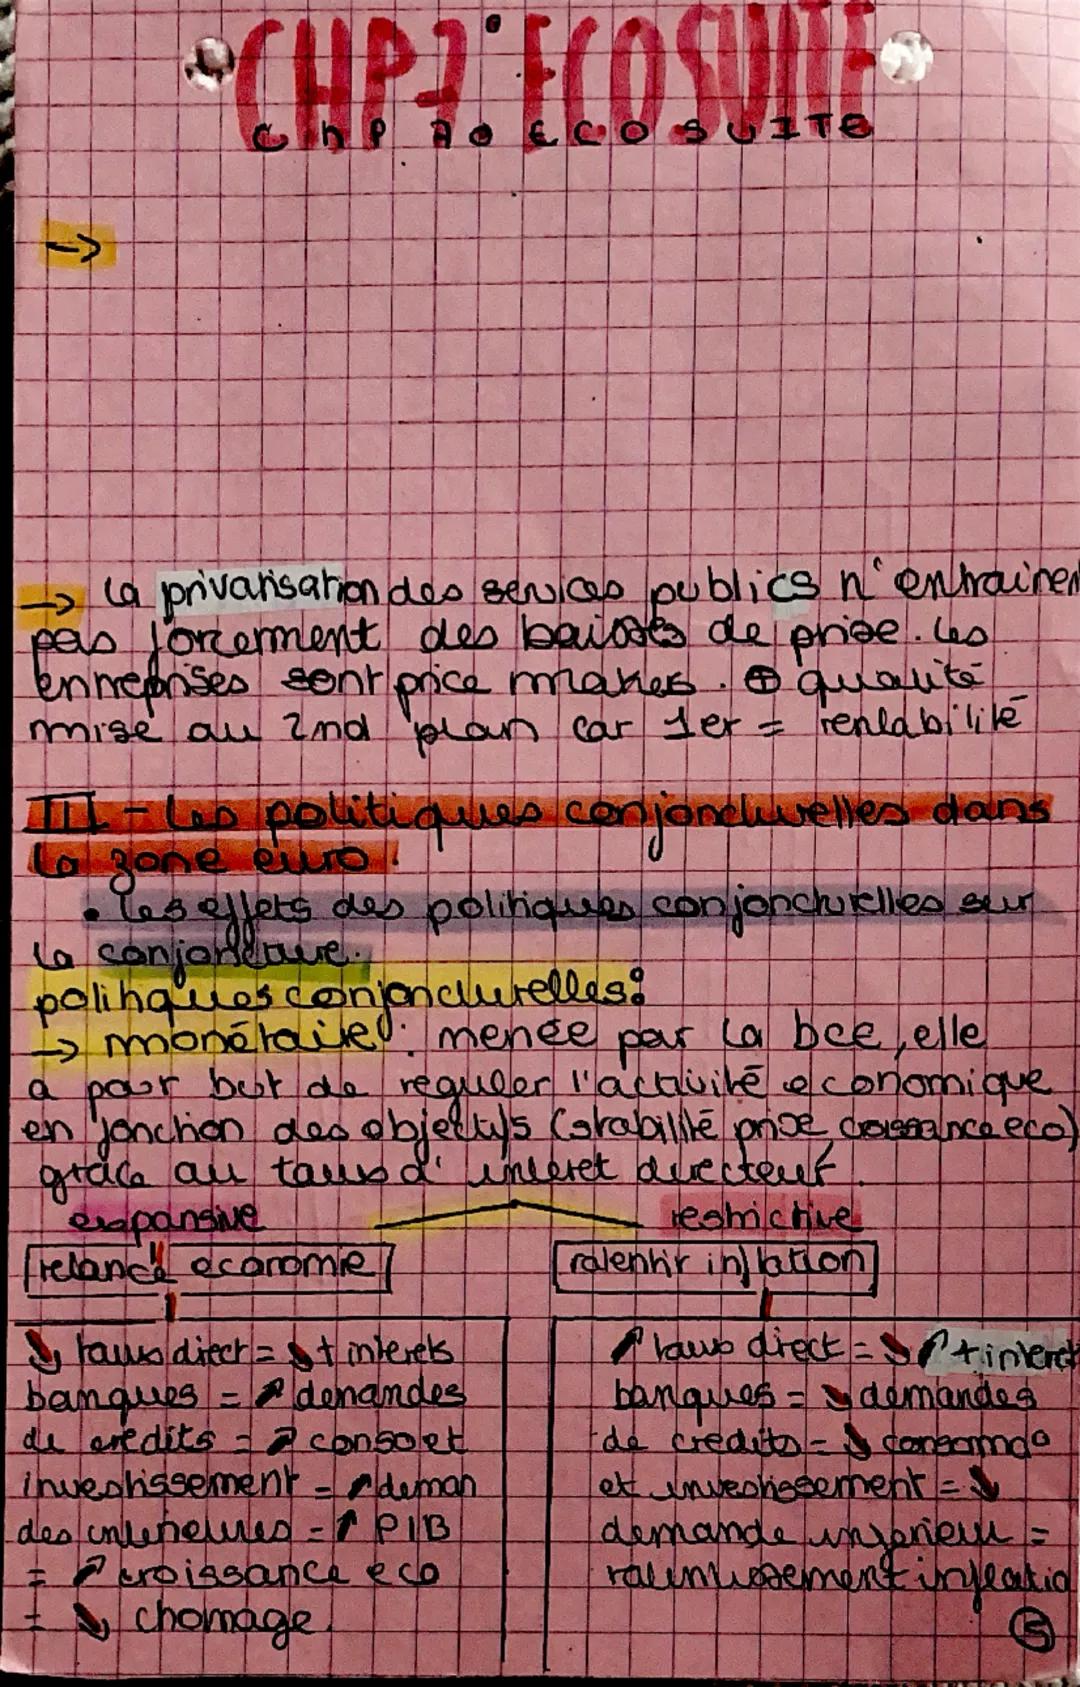 CHP7 ECO SUITE
ChP 70 ECO SUITE
→
→ la privatisation des services publics n'entrainent
pas forcement des baisses de prise. les
entreprises sont price makes. ⊕ qualité
mise au 2nd plan car 1er = rentabilité
III - les politiques conjoncturelles dans
la zone euro.
• les effets des politiques conjoncturelles sur
la conjoncture.
politiques conjoncturelles:
→ monétaire: menée par la bce, elle
a pour but de reguler l'activité economique
en fonction des objectifs (stabilité prise, croissance eco)
grâce au taux d'interet directeur.
expansive restrictive
relance economie ralentir inflation
↘ taux direct = ↘ t interets
banques = ↗ demandes
de credits = ↗ conso et
investissement = ↗ deman
des interieures = ↑ PIB
= ↗ croissance eco
= ↘ chomage.
↗ taux direct = ↘ ↗ t interet
banques = ↘ demandes
de credits = ↘ consommo
et investissement = ↘
demande interieur =
ralentissement inflatio
5